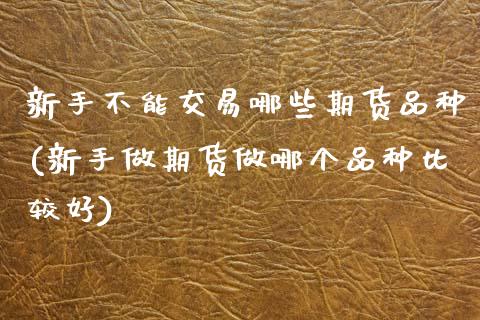 新手不能交易哪些期货品种
(新手做期货做哪个品种比
较好)